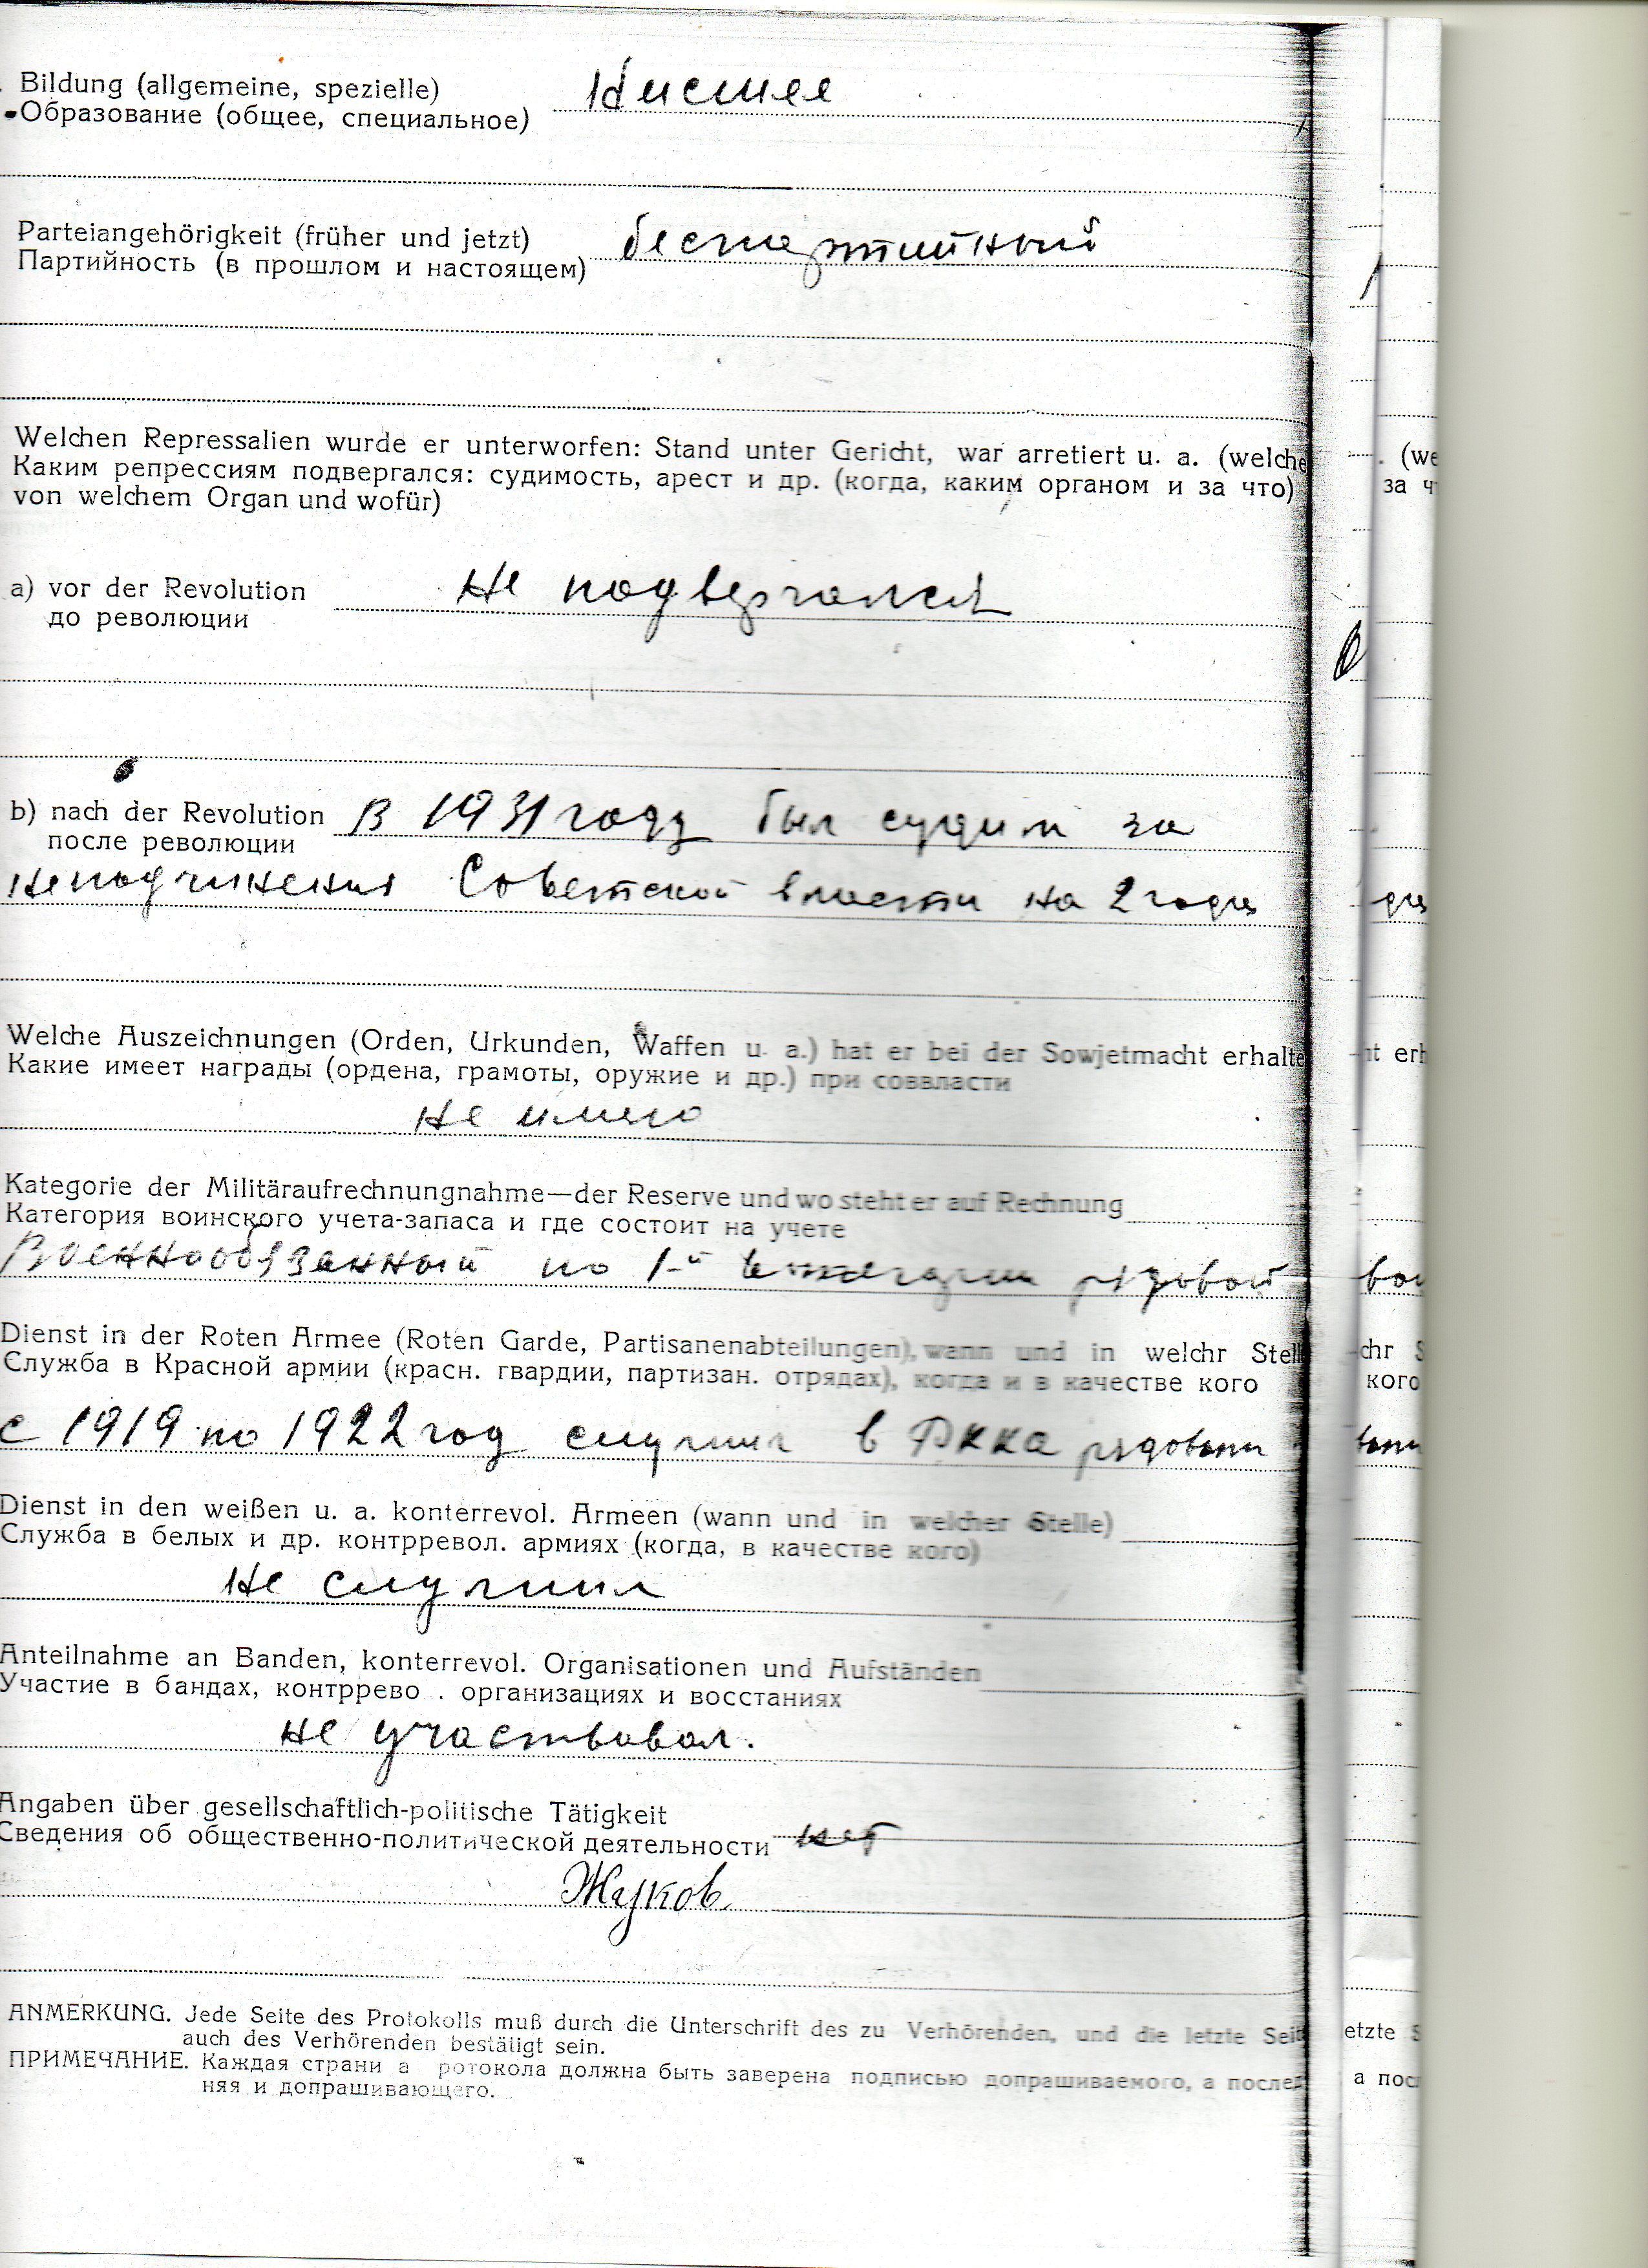 Bildung (allgemeine, spezielle)
Нисшее
Образование (общее, специальное)
Parteiangehörigkeit (früher und jetzt)
беспартийный
Партийность (в прошлом и настоящем)
Welchen Repressalien wurde er unterworfen: Stand unter Gericht, war arretiert u. a. (welche
Каким репрессиям подвергался: судимость, арест и др. (когда, каким органом и за что)
von welchem Organ und wofür)
a) vor der Revolution
не подвергался
до революции
b) nach der Revolution В 1931 году был судим за
после революции
неподчинения Советской власти на 2 года
Welche Auszeichnungen (Orden, Urkunden, Waffen u. a.) hat er bei der Sowjetmacht erhalte
Какие имеет награды (ордена, грамоты, оружие и др.) при соввласти
не имею
Kategorie der Militäraufrechnungnahme—der Reserve und wo steht er auf Rechnung
Категория воинского учета-запаса и где состоит на учете
Военнообязанный по 1-й категории рядовой
Dienst in der Roten Armee (Roten Garde, Partisanenabteilungen), wann und in welchr Stell
Служба в Красной армии (красн. гвардии, партизан. отрядах), когда и в качестве кого
с 1919 по 1922 год служил в РККА рядовым
Dienst in den weißen u. a. konterrevol. Armeen (wann und in welcher Stelle)
Служба в белых и др. контрревол. армиях (когда, в качестве кого)
Не служил
Anteilnahme an Banden, konterrevol. Organisationen und Aufständen
Участие в бандах, контррево . организациях и восстаниях
не участвовал.
Angaben über gesellschaftlich-politische Tätigkeit
Сведения об общественно-политической деятельности нет
Жуков
ANMERKUNG. Jede Seite des Protokolls muß durch die Unterschrift des zu Verhörenden, und die letzte Seit
auch des Verhörenden bestätigt sein.
ПРИМЕЧАНИЕ. Каждая страни а ротокола должна быть заверена подписью допрашиваемого, а послед
няя и допрашивающего.